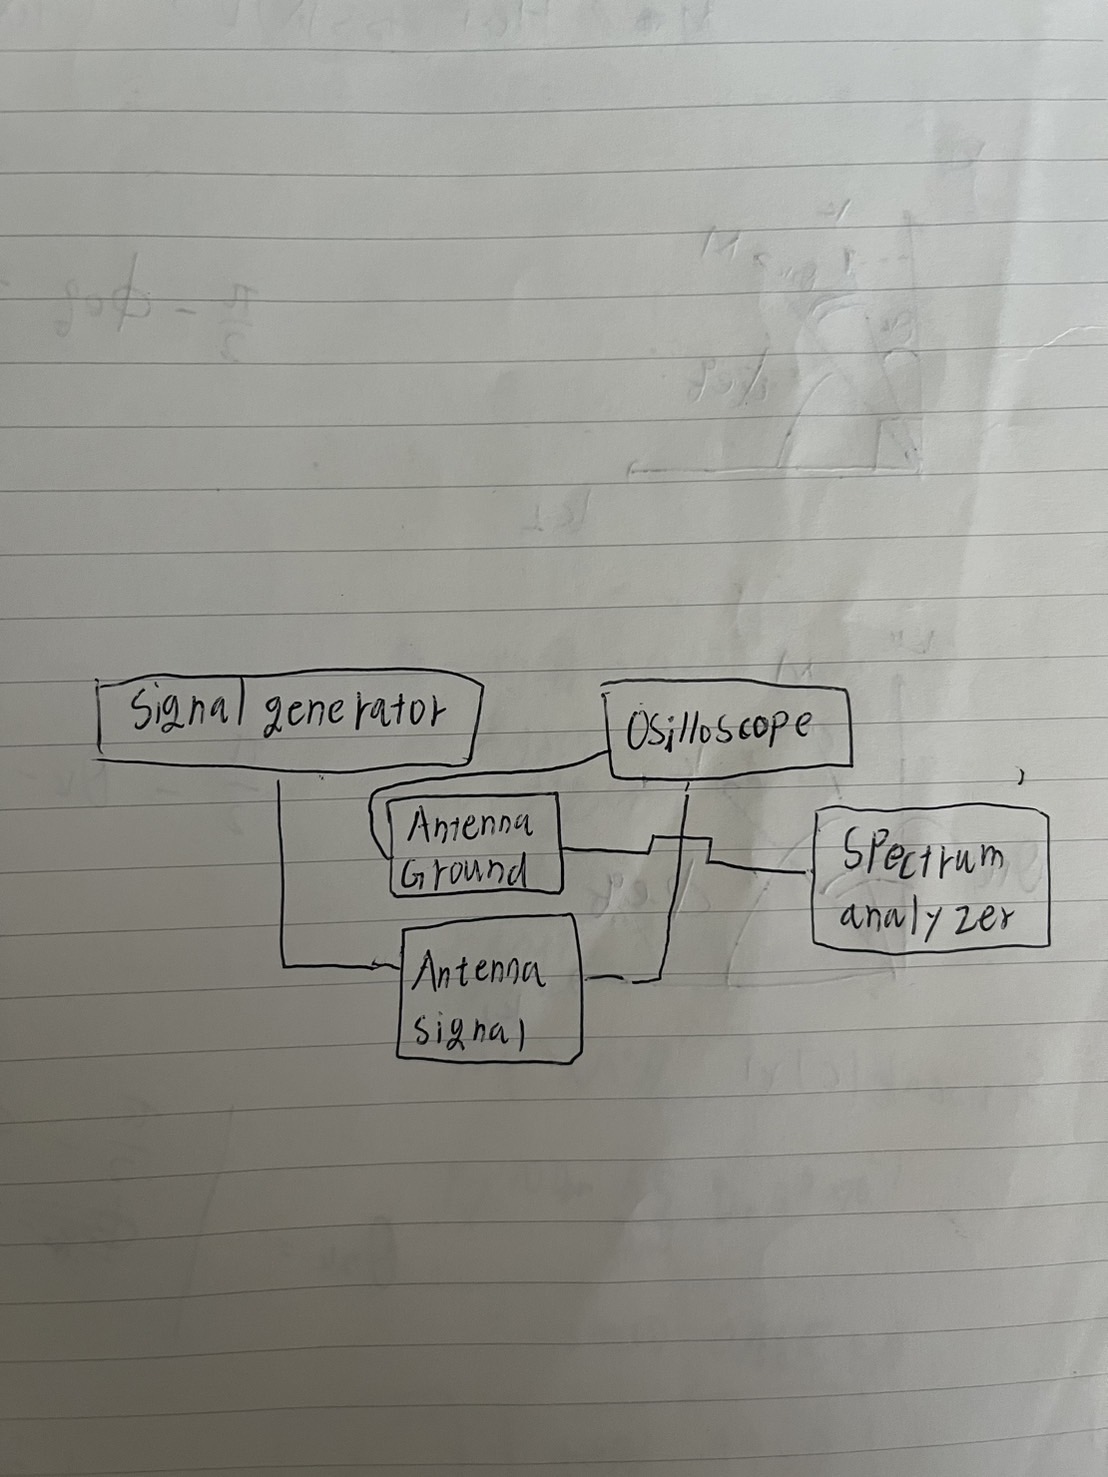 Signal generator
Osilloscope
Antenna
Ground
Spectrum
analyzer
Antenna
signal